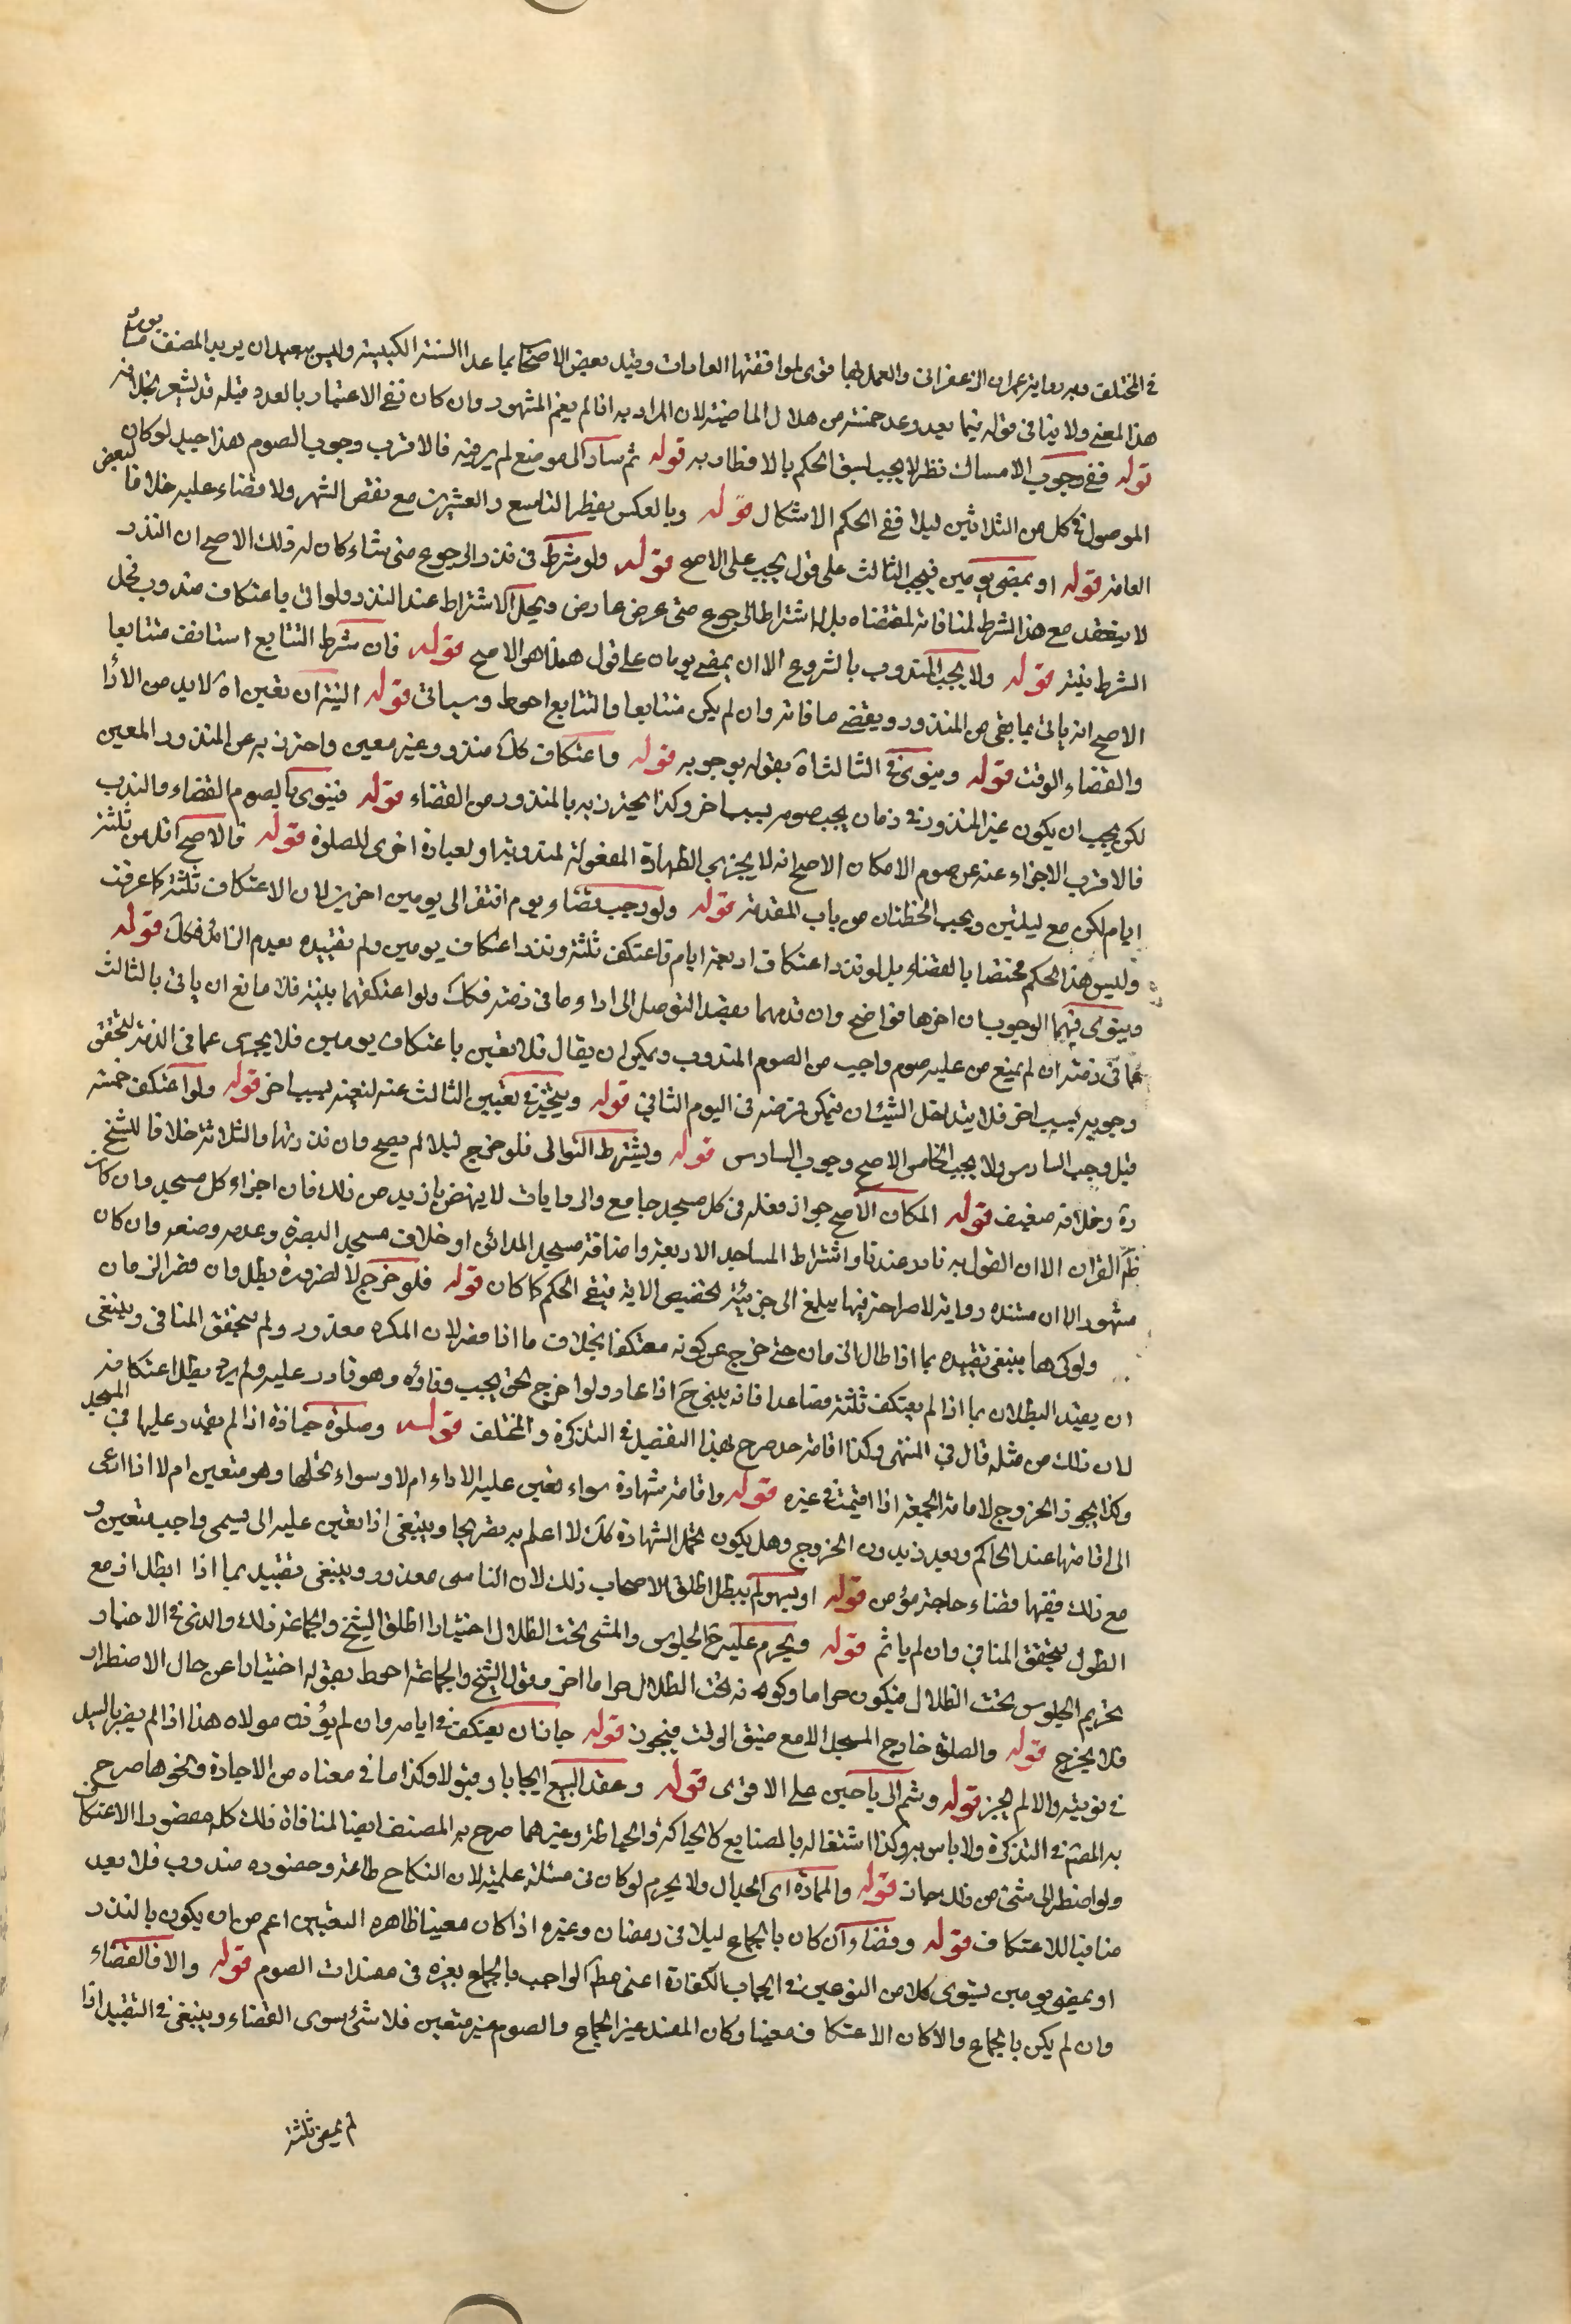 في المختلف وبه رواية عمران الزعفراني والعمل بها قوي لموافقتها العادات وقيد بعض الاصحاب بما عدا السنة الكبيسة وليس ببعيد ان يريد المصنف
هذا المعنى ولا ينافي قوله فيما بعد وعد خمسة من هلال الماضية لان المراد به اذا لم يغم المشهور وان كان نفي الاعتبار بالعدد قبله قد يشعر بخلافه
قوله ففي وجوب الامساك نظر لا يجب لسبق الحكم بالافطار به قوله ثم سار الى موضع لم ير فيه فالاقرب وجوب الصوم هذا جيد لو كان
الموصول في كل من الثلاثين ليلا ففي الحكم الاشكال قوله وبالعكس يفطر التاسع والعشرين مع نقص الشهر ولا قضاء عليه خلافا لبعض
العامة قوله او بمضي يومين فيجب الثالث على قول يجب على الاصح قوله ولو شرط في نذره الرجوع متى شاء كان له ذلك الاصح ان النذر
لا ينعقد مع هذا الشرط لمنافاته لمقتضاه بل لا اشتراط الرجوع متى عرض عارض ويحل الاشتراط عند النذر ولو اتى باعتكاف مندوب فحل
الشرط نيته قوله ولا يجب المندوب بالشروع الا ان يمضي يومان على قول هذا هو الاصح قوله فان شرط التتابع استأنف متتابعا
الاصح انه يأتي بما بقي من المنذور ويقضي ما فاته وان لم يكن متتابعا والتتابع احوط وسياتي قوله النية ان تعين اه لا بد من الأدا
والقضاء الوقت قوله وينوي في الثالث اه بقوله بوجوبه قوله واعتكاف كل منذور وغيره معين واحترز به عن المنذور المعين
لكن يجب ان يكون غير المنذور في زمان يجب صومه بسبب اخر وكذا يحترز به بالمنذور من القضاء قوله فينوي بالصوم القضاء والندب
فالاقرب الاجزاء عنه عن صوم الامكان الاصح انه لا يجزي الطهارة المفعولة لمندوبة او لعبادة اخرى للصلوة قوله فالاصح اقله من ثلثة
ايام لكن مع ليلتين ويجب الحفظان من باب المقدمة قوله ولو وجب قضاء يوم افتقر الى يومين اخرين لان الاعتكاف ثلثة كما عرفت
وليس هذا الحكم مختصا بالقضاء بل لو نذر اعتكاف اربعة ايام فاعتكف ثلثة ونذر اعتكاف يومين ولم يقيده بعدم الزائد فكك قوله
وينوي فيهما الوجوب ان اخرها فواضح وان قدمهما بقصد التوصل الى اداء ما في ذمته فكك ولو اعتكفهما بنية فلا مانع ان ياتي بالثالث
عما في ذمته ان لم يمنع من عليه صوم واجب من الصوم المندوب ويمكن ان يقال فلا تعين باعتكاف يومين فلا يجزي عما في الذمة لتحقق
وجوبه بسبب اخر فلا يتداخل الشيئان فيمكن فرضه في اليوم الثاني قوله ويتخير في تعيين الثالث عنه لتعينه بسبب اخر قوله ولو اعتكف خمسة
قبل وجب السادس ولا يجب الخامس الاصح وجوب السادس قوله ويشترط التوالي فلو خرج ليلا لم يصح وان نذرتها والثلاثة خلافا للشيخ
ره وخلافه ضعيف قوله المكان الاصح جواز فعله في كل مسجد جامع والروايات لا ينهض بازيد من ذلك فان اجزاء كل مسجد وان كان
ظم القران الا ان القول به نادر عندنا واشتراط المساجد الاربعة واضافة مسجد المدائن او خلاف مسجد البصرة وعدمه وضعه وان كان
مشهور الا ان مستنده رواية لا صراحة فيها يبلغ الى جزئية تخصيص الاية فبقي الحكم كما كان قوله فلو خرج لا لضرورة بطل وان قصر الزمان
ولو كرها ينبغي تقييده بما اذا طال الزمان حتى خرج عن كونه معتكفا بخلاف ما اذا قصر لان المكره معذور ولم يتحقق المنافي وينبغي
ان يقيد البطلان بما اذا لم يعتكف ثلثة فصاعدا فانه يبنى ح اذا عاد ولو خرج لحق يجب وفاؤه وهو قادر عليه ولم يره يطل اعتكافه
لان ذلك من مثله قال في المنتهى وكذا اقامة حد صرح بهذا التفصيل في التذكرة والمختلف قوله وصلوة جنازة اذا لم يقدر عليها في المسجد
وكذا يجوز الخروج لاقامة الجمعة اذا اقيمت في غيره قوله واقامة شهادة سواء تعين عليه الاداء ام لا وسواء تحملها وهو متعين ام لا اذا ادعى
الى اقامتها عند الحاكم وبعد زيد ون الخروج وهل يكون تحمل الشهادة كك لا اعلم به تصريحا وينبغي اذا تعين عليه الى يسمى واجب متعين و
مع ذلك ففيها قضاء حاجة مؤمن قوله او يسهو لم يبطل اطلق الاصحاب ذلك لان الناسي معذور وينبغي تقييد بما اذا ابطل اذ مع
الطول يتحقق المنافي وان لم يأثم قوله ويحرم عليه ح الجلوس والمشي تحت الظلال اختيارا اطلق الشيخ والجماعة ذلك والذي في الاخبار
تحريم الجلوس تحت الظلال فيكون حراما وكونه تحت الظلال حراما اخر وقول الشيخ والجماعة احوط بقوله اختيارا عن حال الاضطرار
فلا يخرج قوله والصلوة خارج المسجد الا مع ضيق الوقت فيجوز قوله جاز ان يعتكف في ايامه وان لم يؤذن مولاه هذا اذا لم يضر بالسيد
في نوبته والا لم يجز قوله وشم الرياحين على الاقوى قوله وعقد البيع ايجابا وقبولا وكذا ما في معناه من الاجارة ونحوها صرح
به المصنف في التذكرة ولا باس به وكذا اشتغاله بالصنايع كالحياكة والخياطة وغيرهما صرح به المصنف ايضا لمنافاة ذلك كله مقصود الاعتكاف
ولو اضطر الى شئ من ذلك جاز قوله والمماراة اي الجدال ولا يحرم لو كان في مسئلة علمية لان النكاح طاعة وحضوره مندوب فلا يعد
منافيا للاعتكاف قوله وقضاء وان كان بالجماع ليلا في رمضان وغيره اذا كان معينا ظاهره التعيين اعم من ان يكون بالنذر
او بمضي يومين يستوي كلا من النوعين في ايجاب الكفارة اعني مط الواجب بالجماع بغيره في مفسدات الصوم قوله والا فالقضاء
وان لم يكن بالجماع والا كان الاعتكاف معينا وكان المفسد غير الجماع والصوم غير متعين فلا شئ سوى القضاء وينبغي في التقييد اذا
لم يمض ثلثة